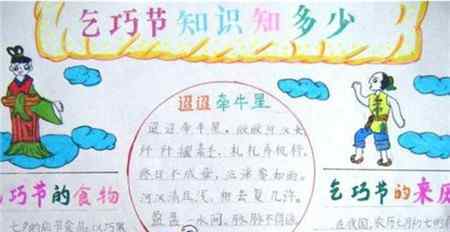 乞巧节知识知多少
迢迢牵牛星
迢迢牵牛星，皎皎河汉女
纤纤擢素手，札札弄机杼。
终日不成章，泣涕零如雨。
河汉清且浅，相去复几许。
盈盈一水间，脉脉不得语
巧节的食物
七夕的应节食品，以巧果
乞巧节的来历
在我国，农历七月初七的